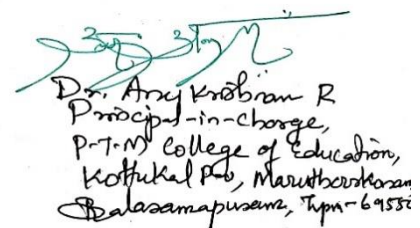 Dr. Anoj Krishnan R
Principal-in-charge,
P-T-M College of Education,
Kottukal P-O, Maruthoorkonam
Balaramapuram, Tvpm-69550